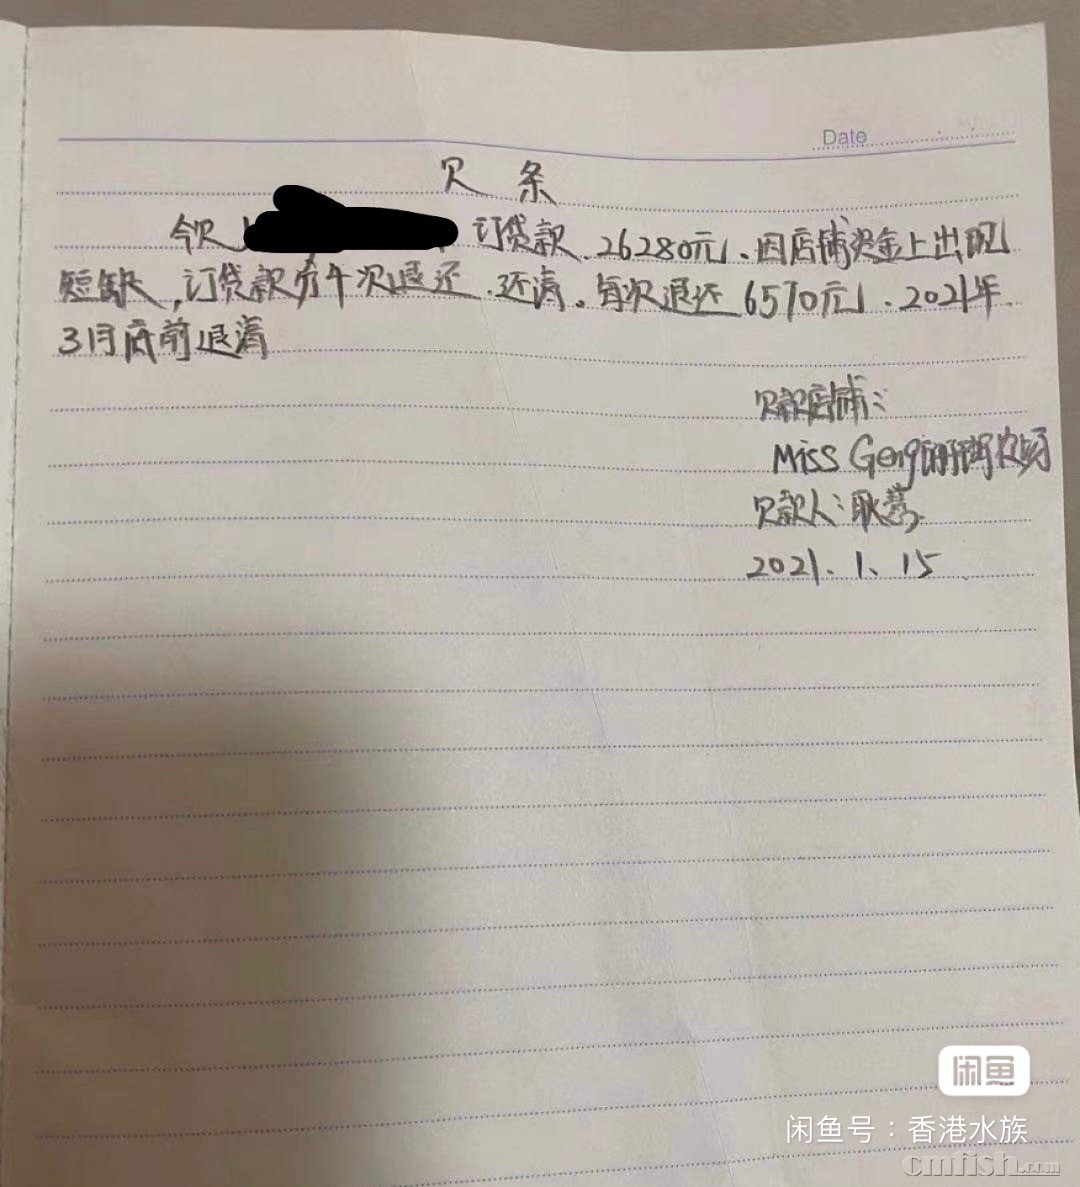 Date
欠 条
今欠 订贷款、26280元、因店铺资金上出现
短缺,订贷款分4次退还、还清。每次退还6570元、2021年
3月底前退清
欠款店铺:
Miss Geng
欠款人:耿慧
2021.1.15
闲鱼
闲鱼号:香港水族
cmfish.com